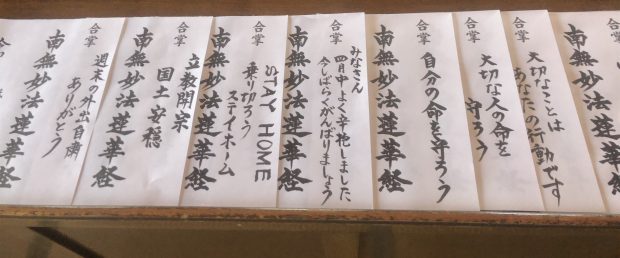 南無妙法蓮華
合掌
大切なことは
あなたの行動です
合掌
大切な人の命を
守ろう
合掌
自分の命を守ろう
南無妙法蓮華経
合掌
みなさん
四月中よく辛抱しました
今しばらくがんばりましょう
南無妙法蓮華経
合掌
STAY HOME
乗り切ろう
ステイホーム
南無妙法蓮華経
合掌
立教開宗
国土安穏
南無妙法蓮華経
合掌
週末の外出自粛
ありがとう
南無妙法蓮華経